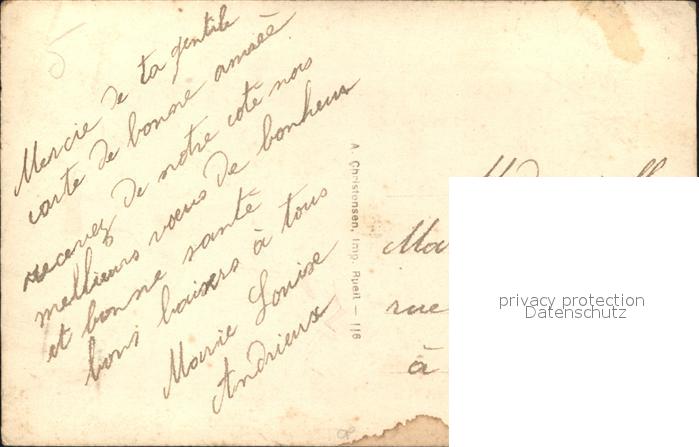 5
Mercie de ta gentile
carte de bonne année
recevez de notre coté nos
meilleurs vœus de bonheur
et bonne santé
bons baisers à tous
Marie Louise
Andrieux
A. Christensen, Imp. Rueil — 116
Ma
rue
à
privacy protection
Datenschutz